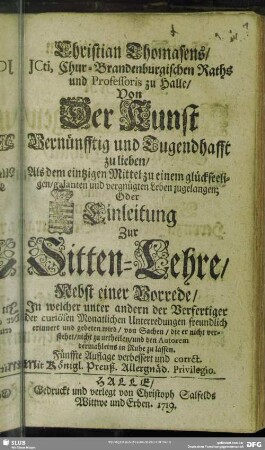 Christian Thomasens/
JCti, Chur-Brandenburgischen Raths
und Professoris zu Halle/
Von
Der Kunst
Vernünfftig und Tugendhafft
zu lieben/
Als dem eintzigen Mittel zu einem glückseeli-
gen/galanten und vergnügten Leben zugelangen;
Oder
Einleitung
Zur
Sitten-Lehre/
Nebst einer Vorrede/
In welcher unter andern der Verfertiger
der curiösen Monatlichen Unterredungen freundlich
erinnert und gebeten wird/ von Sachen/ die er nicht ver-
stehet/nicht zu urtheilen/und den Autorem
dermahleins in Ruhe zu lassen.
Fünffte Auflage verbessert und corrèt.
Mit Königl. Preuß. Allergnäd. Privilegio.
HALLE/
Gedruckt und verlegt von Christoph Salfelds
Wittwe und Erben. 1719.
SLUB
DFG